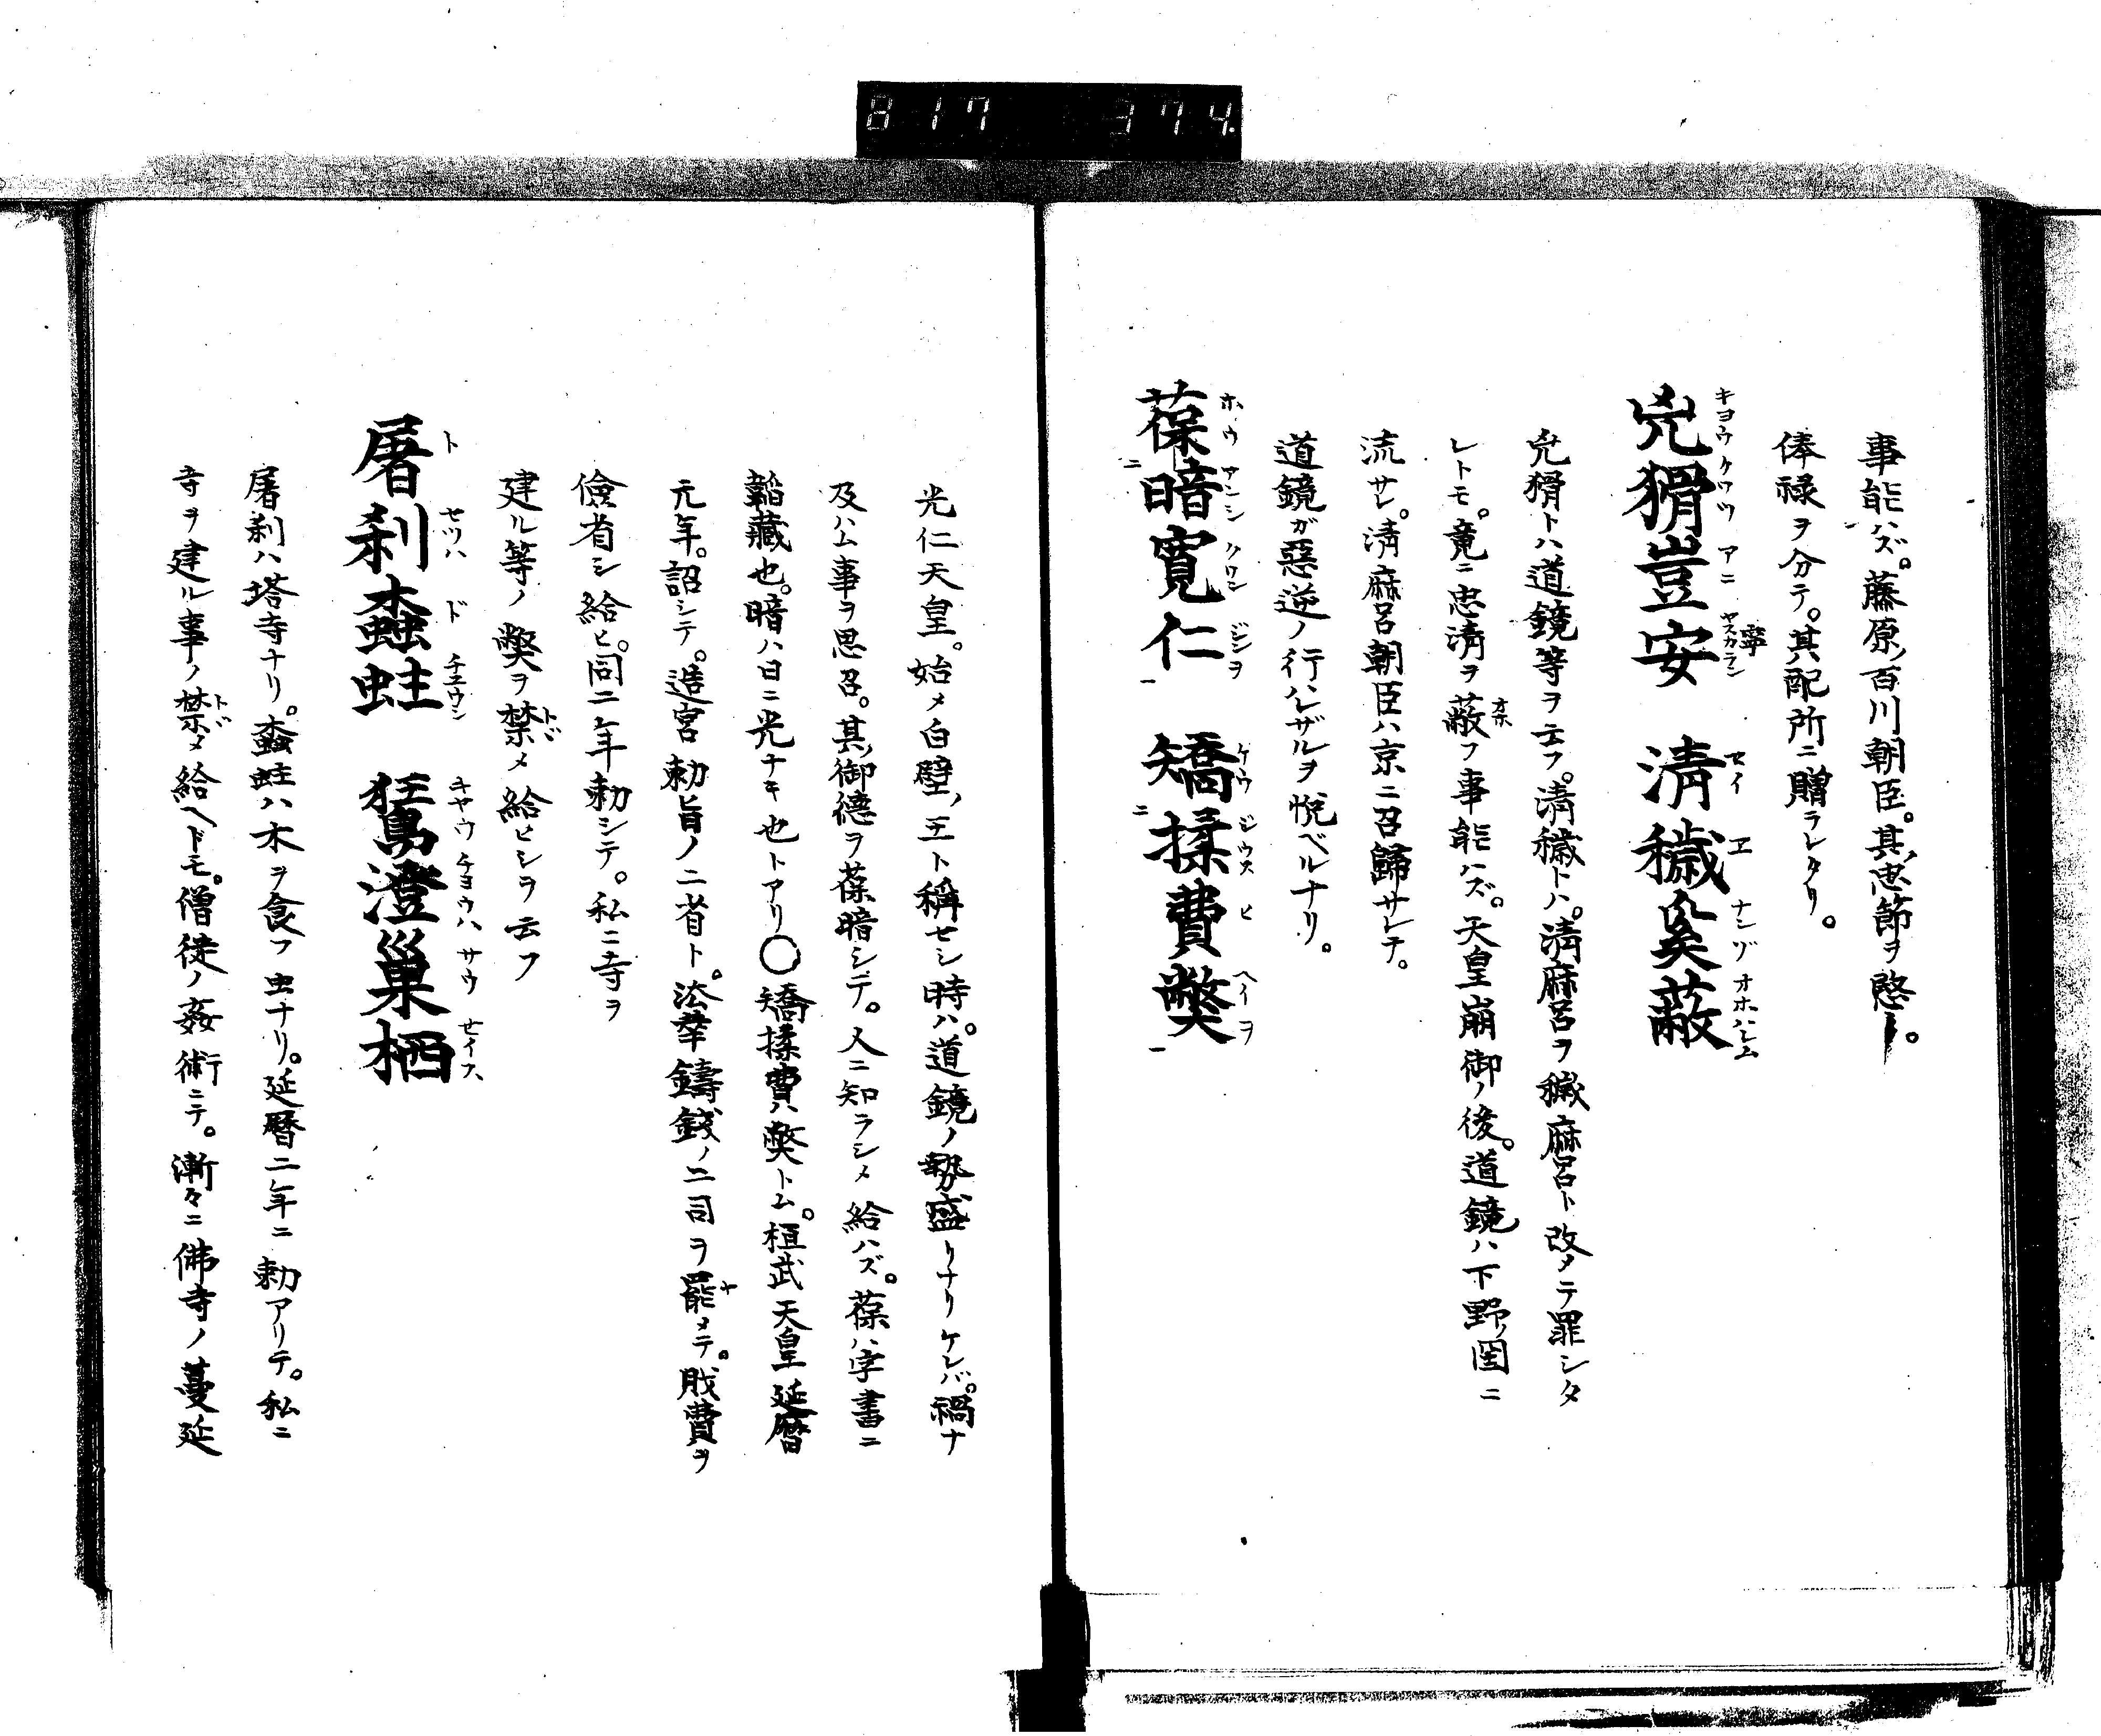 817 374.
事能ハズ。藤原ノ百川朝臣。其ノ忠節ヲ愍ミ。
俸禄ヲ分テ。其配所ニ贈ラレタリ。
兇猾豈安 清穢奚蔽
兇猾トハ道鏡等ヲ云フ。清穢トハ。清麻呂ヲ穢麻呂ト改メテ罪シタ
レトモ。竟ニ忠清ヲ蔽フ事能ハズ。天皇崩御ノ後。道鏡ハ下野ノ国ニ
流サレ。清麻呂朝臣ハ京ニ召歸サレテ。
道鏡ガ惡逆ノ行ハレザルヲ悦ベルナリ。
葆暗寛仁 矯揉費弊
光仁天皇。始メ白壁ノ王ト稱セシ時ハ。道鏡ノ勢盛リナリケレバ。禍ナ
及ハム事ヲ思召。其ノ御德ヲ葆暗シテ。人ニ知ラシメ給ハズ。葆ハ字書ニ
韜藏也。暗ハ日ニ光ナキ也トアリ〇矯揉費弊トハ。桓武天皇延曆
元年。詔シテ。造宮勅旨ノ二省ト。法華鑄錢ノ二司ヲ罷メテ。財費ヲ
儉省シ給ヒ。同二年勅シテ。私ニ寺ヲ
建ル等ノ弊ヲ禁メ給ヒシヲ云フ
屠刹螙蛀 鵟澄巢栖
屠刹ハ塔寺ナリ。螙蛀ハ木ヲ食フ虫ナリ。延曆二年ニ勅アリテ。私ニ
寺ヲ建ル事ノ禁メ給ヘドモ。僧徒ノ姦術ニテ。漸々ニ佛寺ノ蔓延